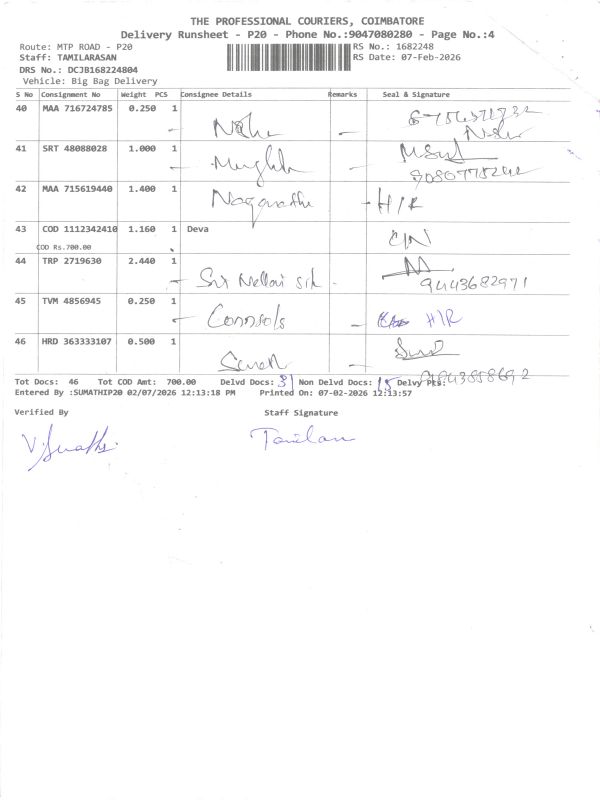 THE PROFESSIONAL COURIERS, COIMBATORE
Delivery Runsheet - P20 - Phone No.:9047080280 - Page No.:4
Route: MTP ROAD - P20 RS No.: 1682248
Staff: TAMILARASAN RS Date: 07-Feb-2026
DRS No.: DCJB168224804
Vehicle: Big Bag Delivery
S No Consignment No Weight PCS Consignee Details Remarks Seal & Signature
40 MAA 716724785 0.250 1
41 SRT 48088028 1.000 1
42 MAA 715619440 1.400 1 H/R
43 COD 1112342410 1.160 1 Deva
COD Rs.700.00
44 TRP 2719630 2.440 1 Sri Nellai
9443682971
45 TVM 4856945 0.250 1 H/R
46 HRD 363333107 0.500 1
Tot Docs: 46 Tot COD Amt: 700.00 Delvd Docs: 31 Non Delvd Docs: 15 Delvy Pts:
Entered By :SUMATHIP20 02/07/2026 12:13:18 PM Printed On: 07-02-2026 12:13:57
Verified By Staff Signature